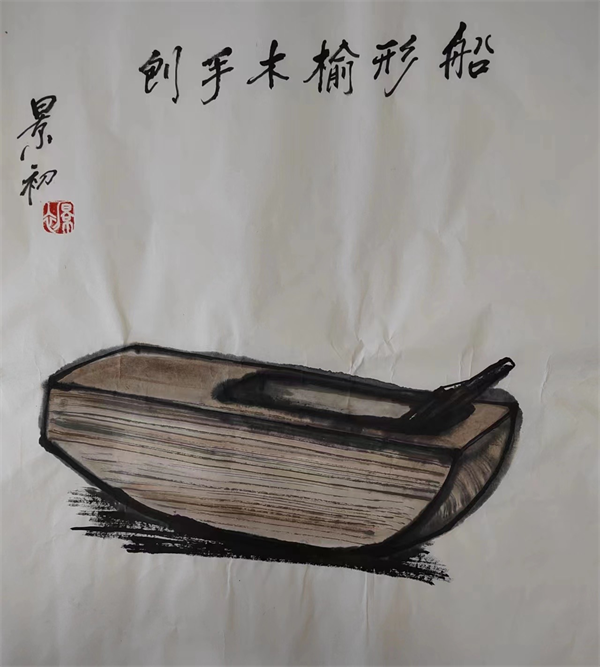 船形榆木手刨
景初